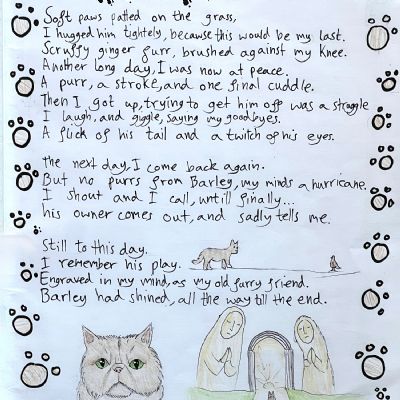 Soft paws patted on the grass,
I hugged him tightely, because this would be my last.
Scruffy ginger furr, brushed against my knee.
Another long day, I was now at peace.
A purr, a stroke, and one final cuddle.
Then I got up, trying to get him off was a struggle
I laugh, and giggle, saying my goodbyes.
A flick of his tail and a twitch of his eyes.
the next day, I come back again.
But no purrs from Barley, my minds a hurricane,
I shout and I call, until finally...
his owner comes out, and sadly tells me.
Still to this day.
I remember his play.
Engraved in my mind, as my old furry friend.
Barley had shined, all the way till the end.